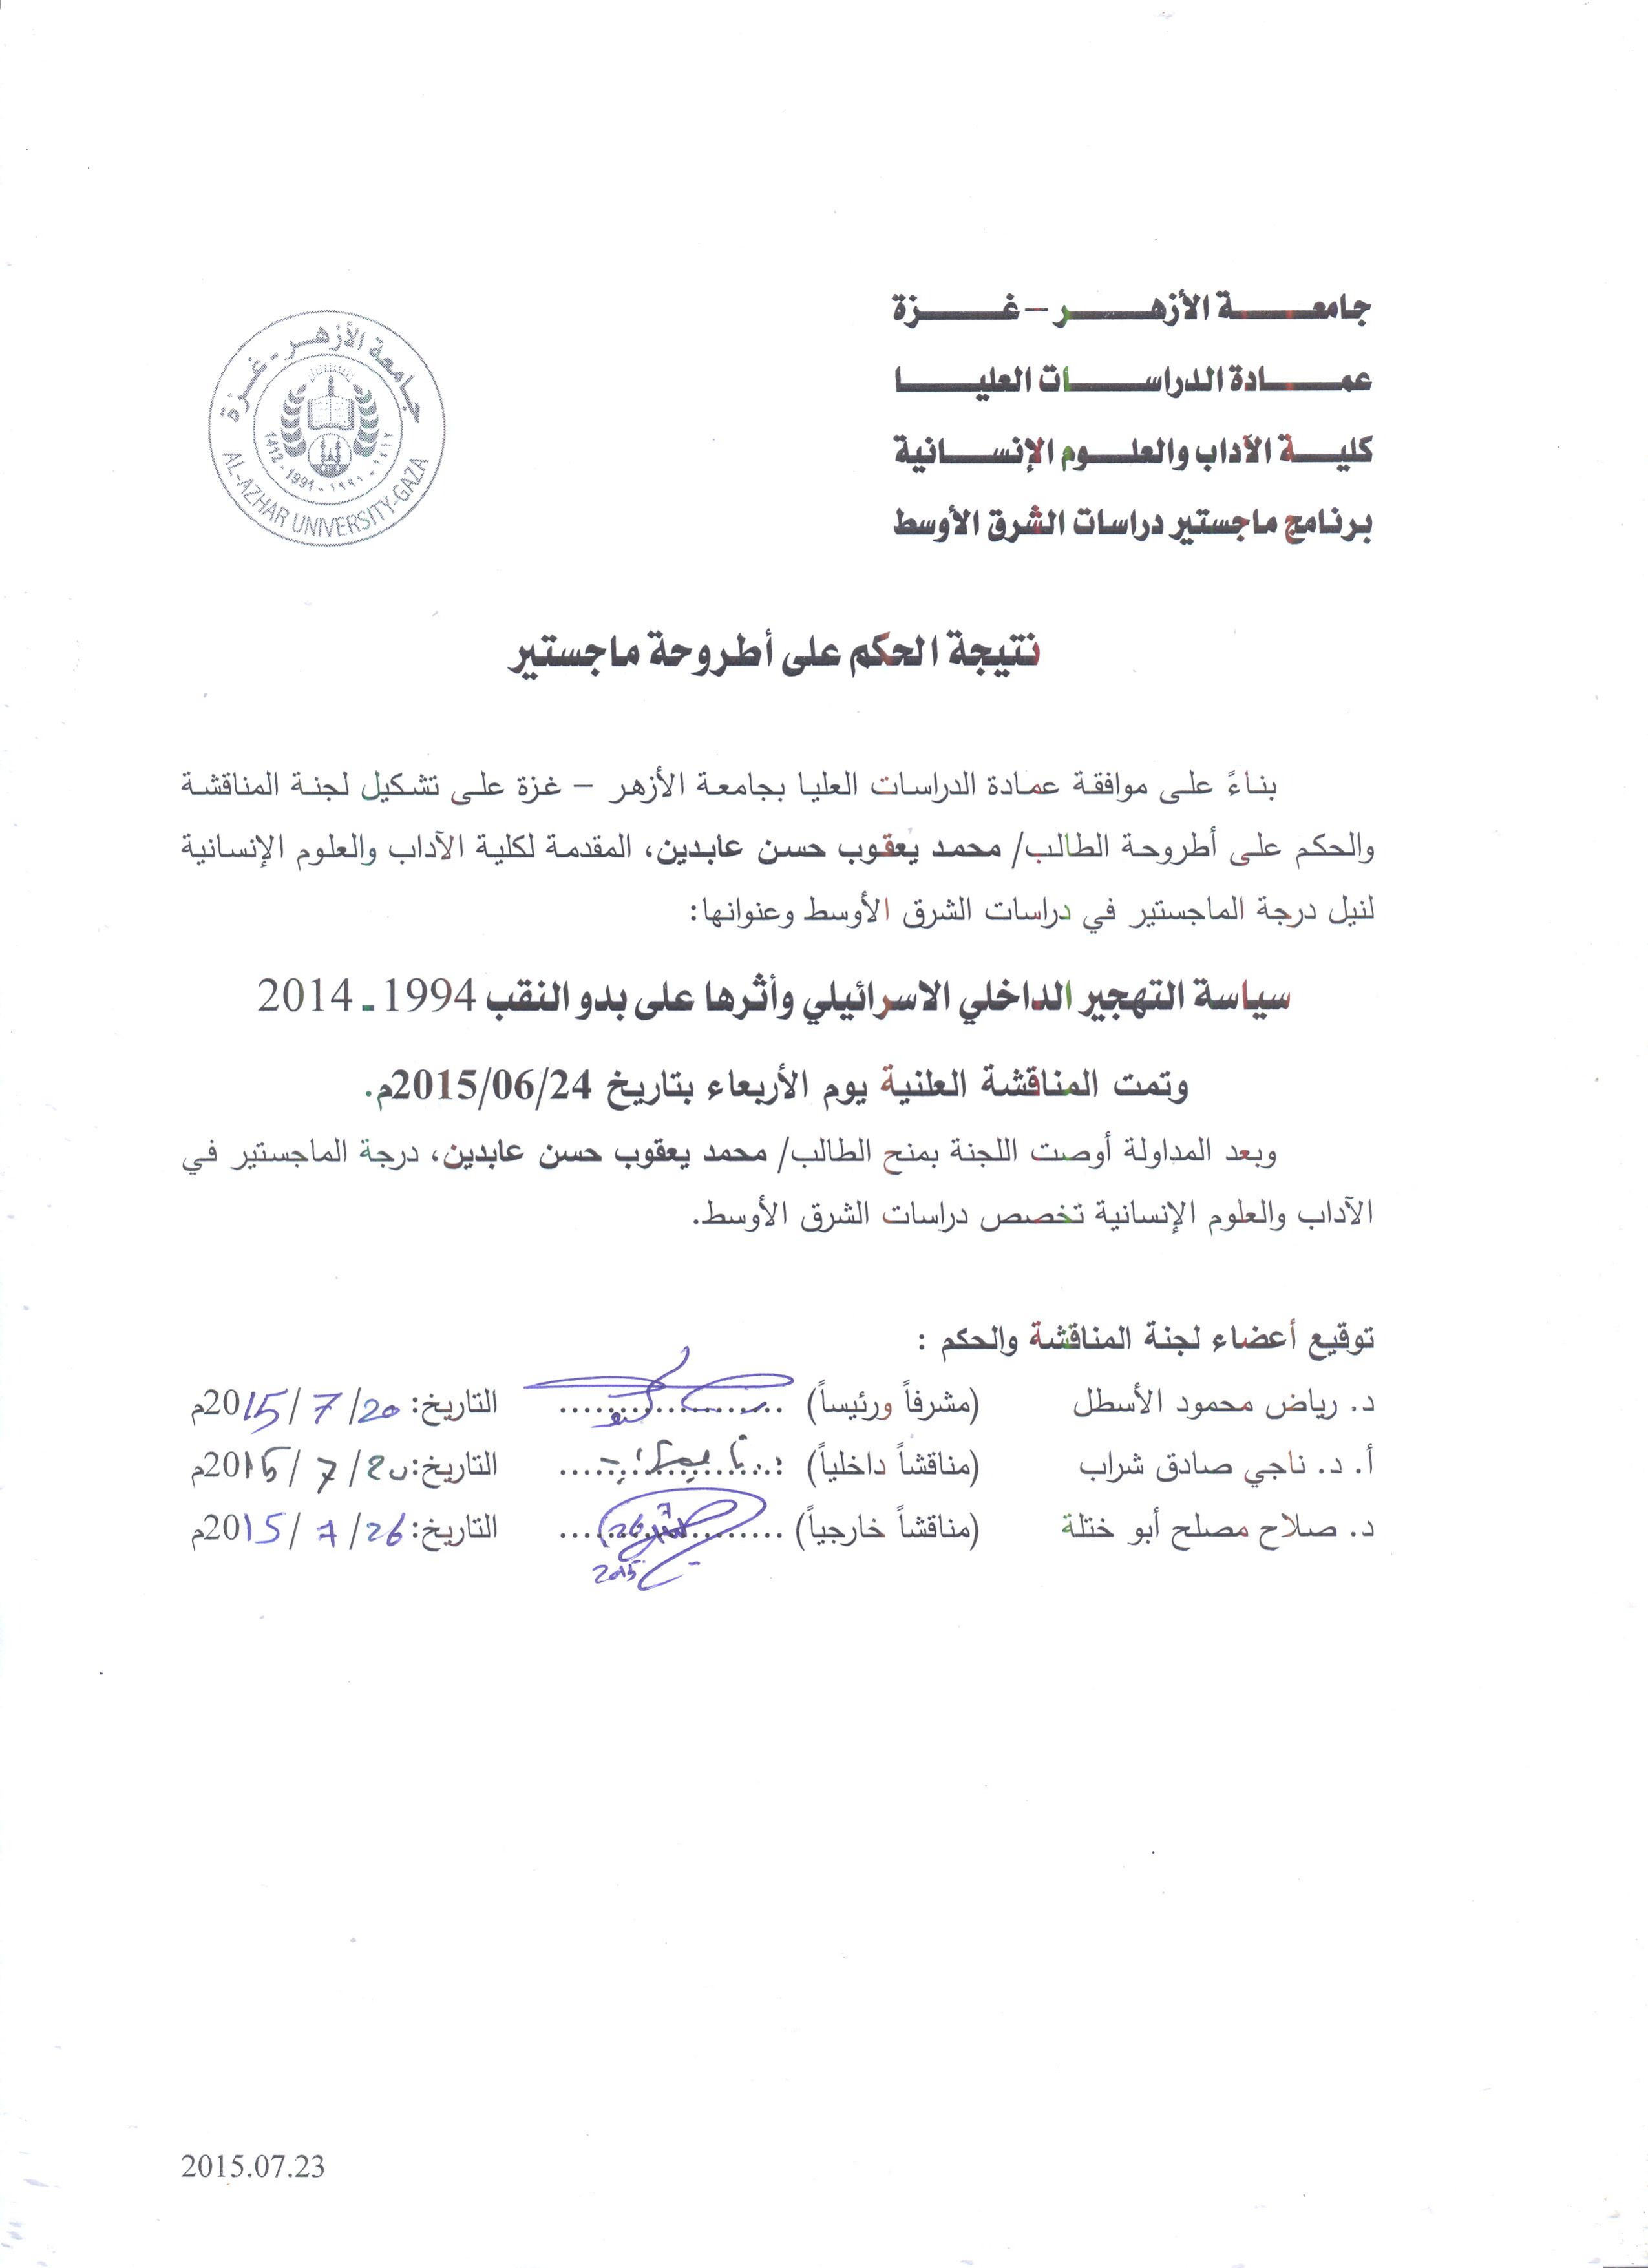 جامعة الأزهر – غزة
عمادة الدراسات العليا
كلية الآداب والعلوم الإنسانية
برنامج ماجستير دراسات الشرق الأوسط
جامعة الأزهر - غزة
1412 - 1991 - ١٩٩١ - ١٤١٢
AL-AZHAR UNIVERSITY-GAZA
نتيجة الحكم على أطروحة ماجستير
بناءً على موافقة عمادة الدراسات العليا بجامعة الأزهر – غزة على تشكيل لجنة المناقشة
والحكم على أطروحة الطالب/ محمد يعقوب حسن عابدين، المقدمة لكلية الآداب والعلوم الإنسانية
لنيل درجة الماجستير في دراسات الشرق الأوسط وعنوانها:
سياسة التهجير الداخلي الاسرائيلي وأثرها على بدو النقب 1994 ـ 2014
وتمت المناقشة العلنية يوم الأربعاء بتاريخ 2015/06/24م.
وبعد المداولة أوصت اللجنة بمنح الطالب/ محمد يعقوب حسن عابدين، درجة الماجستير في
الآداب والعلوم الإنسانية تخصص دراسات الشرق الأوسط.
توقيع أعضاء لجنة المناقشة والحكم :
د. رياض محمود الأسطل (مشرفاً ورئيساً) .................... التاريخ: 20/ 7 /2015م
أ. د. ناجي صادق شراب (مناقشاً داخلياً) .................... التاريخ: 20/ 7 /2015م
د. صلاح مصلح أبو ختلة (مناقشاً خارجياً) .................... التاريخ: 26/ 7 /2015م
26
7
2015
2015.07.23